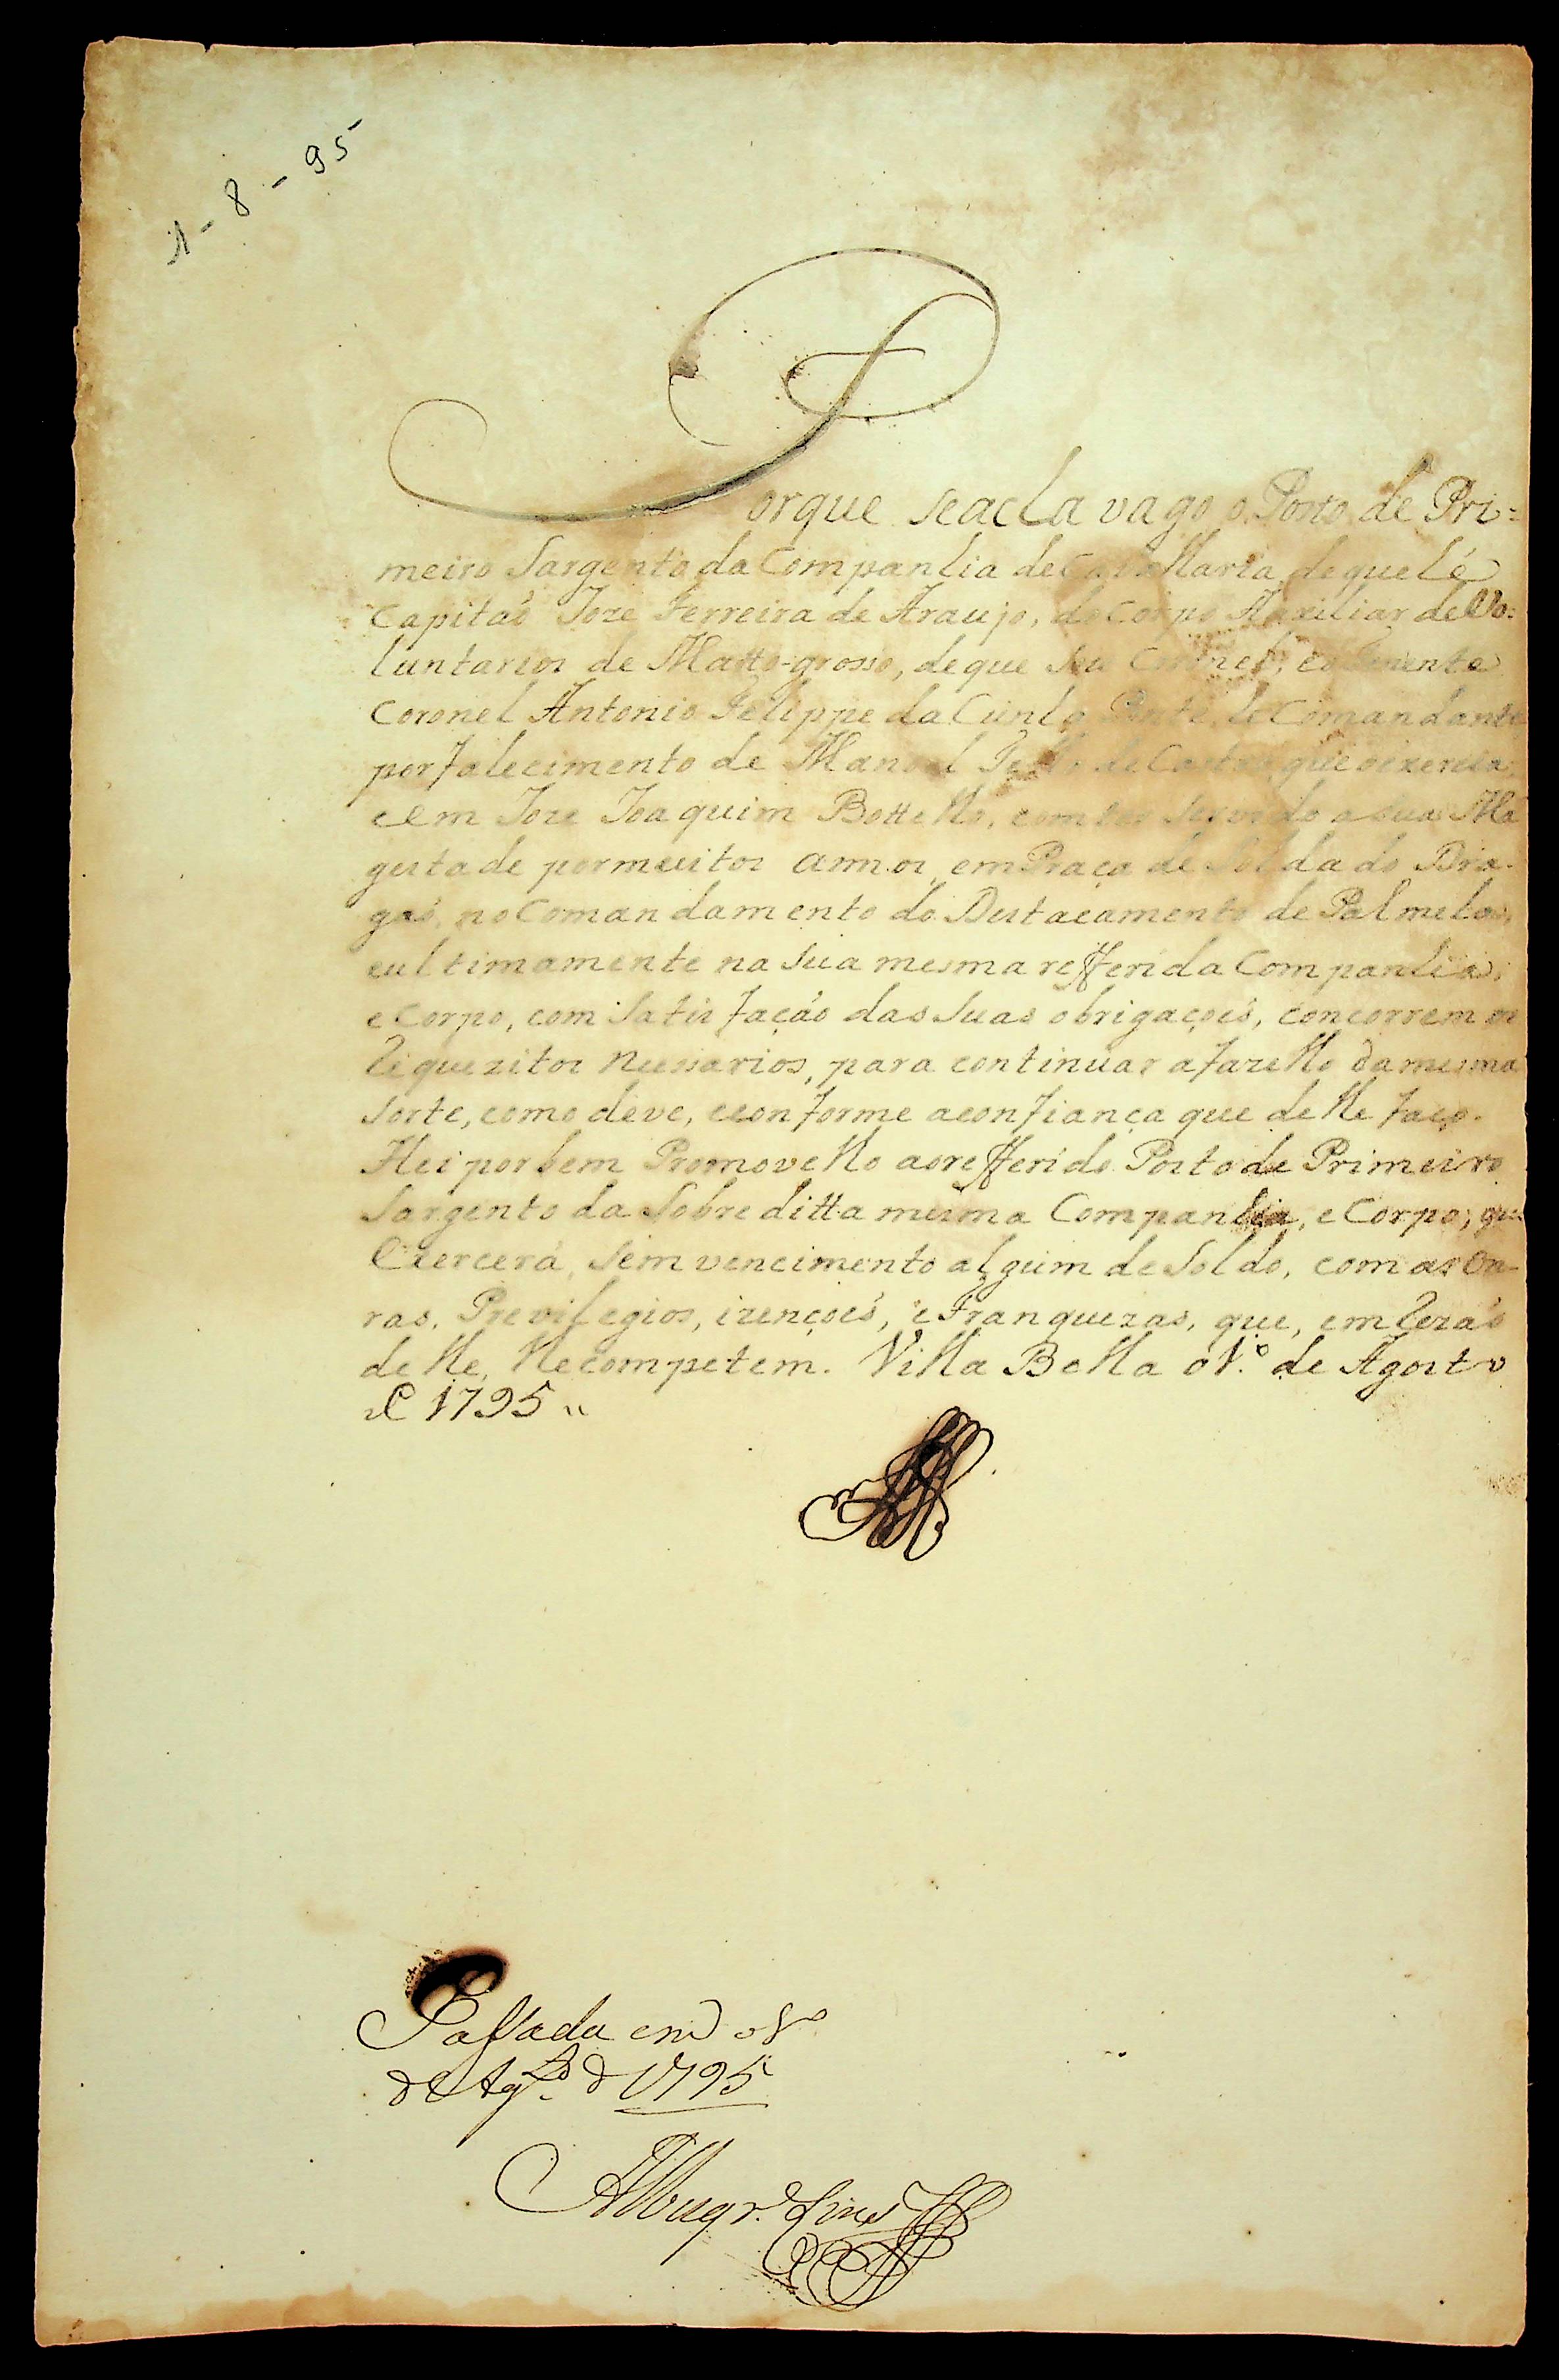 1-8-95
Porque seacha vago o Posto de Pri=
meiro Sargento da Companhia de Cavallaria, de que hé
Capitaó Joze Ferreira de Araujo, do Corpo Auxiliar de Vo=
luntarios de Matto-grosso, de que seu Coronel, eo Tenente
Coronel Antonio Felippe da Cunha Ponte, he Comandante
por falecimento de Manoel de Castro, que o exercia;
e em Joze Joaquim Bottelho, com ter servido a Sua Ma
gestade por muitos annos, em Praça de Soldado Dra-
gaó, no Comandamento do Destacamento de Palmela,
eultimamente na Sua mesma refferida Companhia,
e Corpo, com Satisfaçáo das Suas obrigaçoés, concorrem os
Requezitos Necessarios, para continuar a fazello da mesma
Sorte, como deve, e conforme a confiança que delle faço.
Hei por bem Promovello ao refferido Posto de Primeiro
Sargento da Sobreditta mesma Companhia, e Corpo; que
Exercerá, Sem vencimento algum de Soldo, com as On-
ras, Previlegios, izençoés, e Franquezas, que, em Rezáo
delle, lhe competem. Villa Bella o 1.º de Agosto
de 1795 "
Passada em o 1º
de Agto. de 1795
Albuqr. Lins